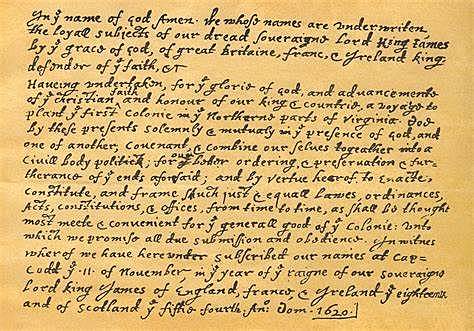 In yᵉ name of God Amen. We whose names are vnderwriten,
the loyall subjects of our dread soveraigne Lord King James
by yᵉ grace of God, of great Britaine, franc, & Ireland king,
defender of yᵉ faith, &c
Haveing vndertaken, for yᵉ glorie of God, and advancemente
of yᵉ christian faith and honour of our king & countrie, a voyage to
plant yᵉ first colonie in yᵉ Northerne parts of Virginia. Doe
by these presents solemnly & mutualy in yᵉ presence of God, and
one of another, covenant, & combine our selves togeather into a
Civill body politick; for our better ordering, & preservation & fur=
therance of yᵉ ends aforesaid; and by vertue hearof, to enacte,
constitute, and frame shuch just & equall Lawes, ordinances,
Acts, constitutions, & offices, from time to time, as shall be thought
most meete & convenient for yᵉ generall good of yᵉ colonie: vnto
which we promise all due submission and obedience. In witnes
wherof we have hereunder subscribed our names at Cap=
Codd yᵉ ·11· of November, in yᵉ year of yᵉ raigne of our soveraigne
Lord king James of England, france & Ireland yᵉ eighteenth
and of Scotland yᵉ fiftie fourth. Anº Dom. 1620.